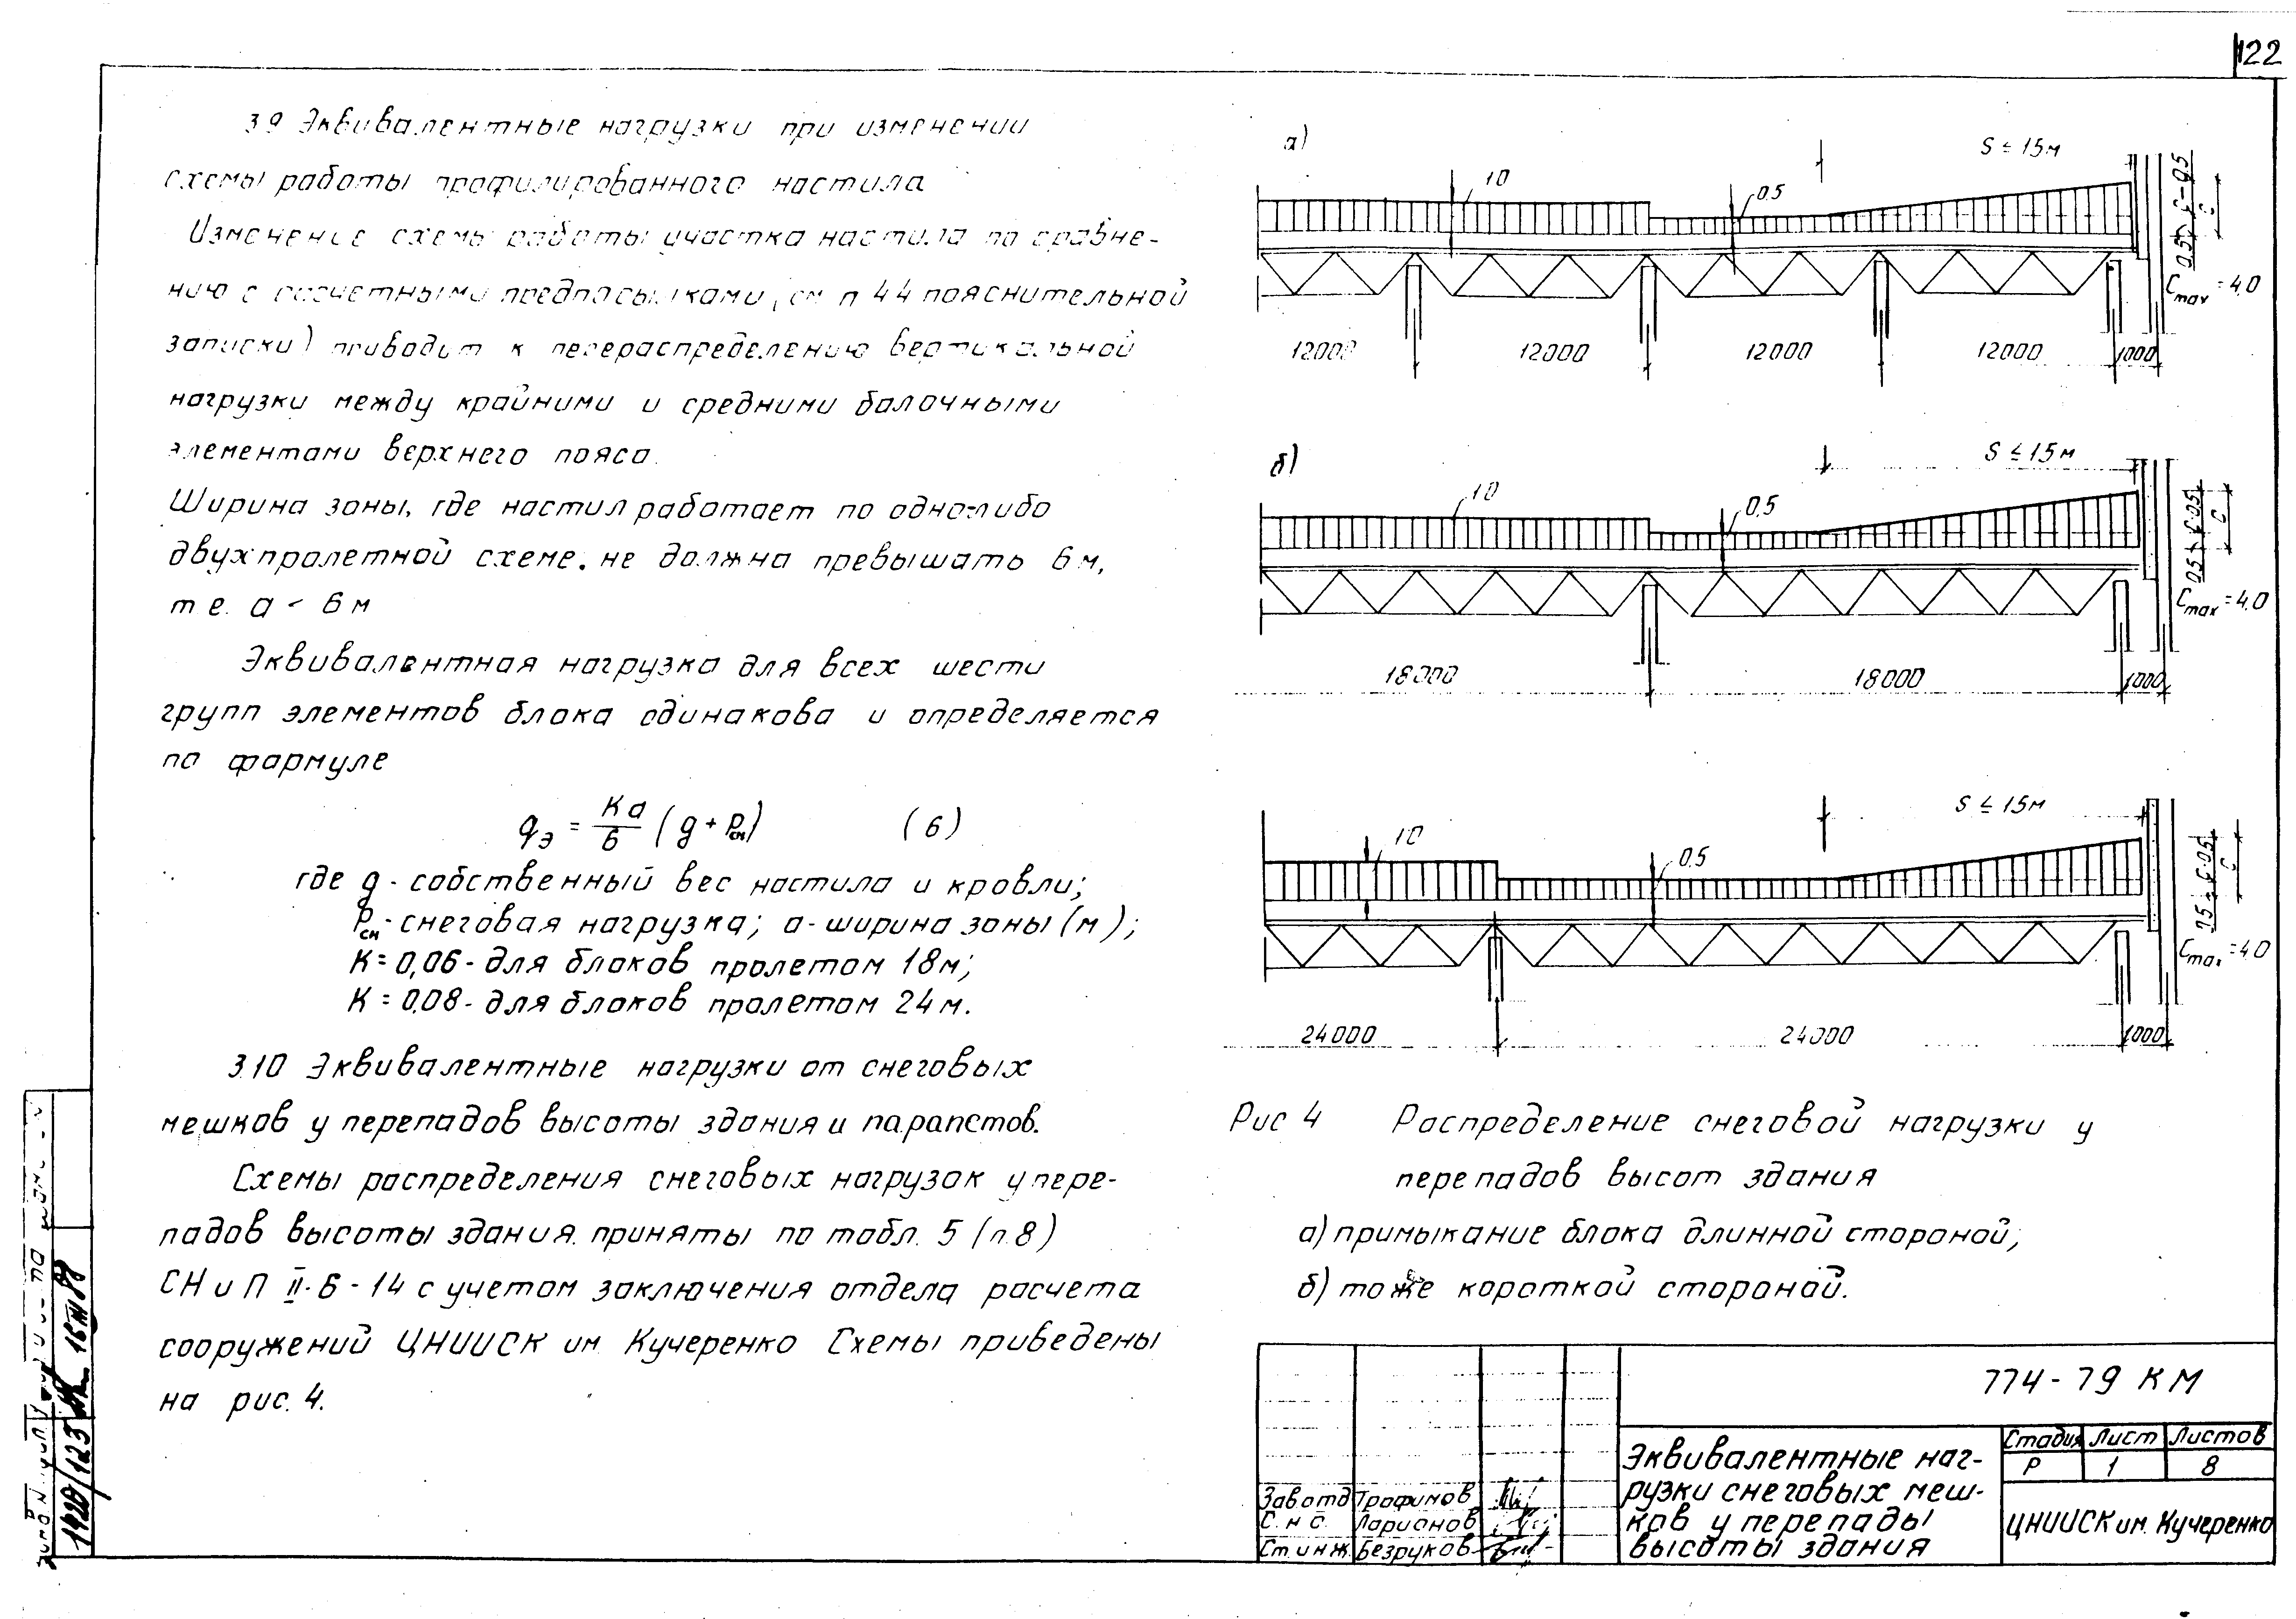 122
3.9 Эквивалентные нагрузки при изменении
схемы работы профилированного настила
Изменение схемы работы участка настила по сравне-
нию с расчетными предпосылками (см п 4.4 пояснительной
записки) приводит к перераспределению вертикальной
нагрузки между крайними и средними балочными
элементами верхнего пояса.
Ширина зоны, где настил работает по одно-либо
двухпролетной схеме, не должна превышать 6м,
т.е. а < 6м
Эквивалентная нагрузка для всех шести
групп элементов блока одинакова и определяется
по формуле
qэ = Ka/6 (g + Pсн) (6)
где g - собственный вес настила и кровли;
Pсн - снеговая нагрузка; а - ширина зоны (м);
K = 0,06 - для блоков пролетом 18м;
K = 0,08 - для блоков пролетом 24м.
3.10 Эквивалентные нагрузки от снеговых
мешков у перепадов высоты здания и парапетов.
Схемы распределения снеговых нагрузок у пере-
падов высоты здания приняты по табл. 5 (п.8)
СНиП II-6-14 с учетом заключения отдела расчета
сооружений ЦНИИСК им. Кучеренко Схемы приведены
на рис. 4.
а)
S ≤ 15м
1.0
0.5
C
Cmax = 4,0
12000 12000 12000 12000 1000
б)
S ≤ 15м
1.0
0.5
C
Cmax = 4,0
18000 18000 1000
S ≤ 15м
1.0
0.5
C
Cmax = 4,0
24000 24000 1000
Рис 4 Распределение снеговой нагрузки у
перепадов высот здания
а) примыкание блока длинной стороной;
б) тоже короткой стороной.
774-79 КМ
Эквивалентные наг-
рузки снеговых меш-
ков у перепады
высоты здания
Стадия Лист Листов
Р 1 8
ЦНИИСК им. Кучеренко
Зав отд Трофимов
С.н.с. Ларионов
Ст.инж. Безруков